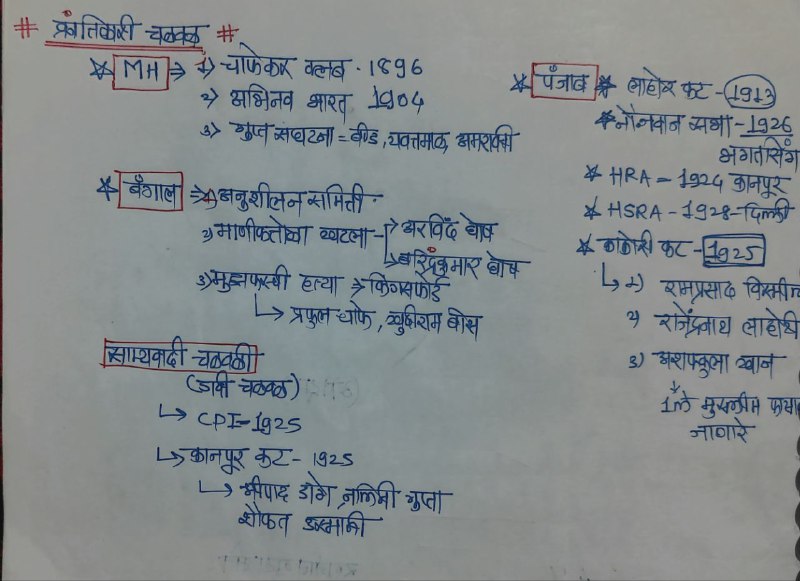 # क्रांतिकारी चळवळ #
* MH ⇒ 1) चाफेकर क्लब - 1896
2) अभिनव भारत 1904
3) गुप्त संघटना = बीड, यवतमाळ, अमरावती
* बंगाल ⇒ 1) अनुशीलन समिती
2) माणीकतोळा खटला - → अरविंद घोष
→ बरिंद्रकुमार घोष
3) मुझफ्फरपुर हत्या ⇒ किंग्सफोर्ड
↳ प्रफुल चाफे, खुदीराम बोस
साम्यवादी चळवळी
(डावी चळवळ)
↳ CPI - 1925
↳ कानपूर कट - 1925
↳ श्रीपाद डांगे, नलिनी गुप्ता
शौकत उस्मानी
* पंजाब * लाहोर कट - 1913
* नौजवान सभा - 1926
भगतसिंग
* HRA - 1924 कानपूर
* HSRA - 1928 - दिल्ली
* काकोरी कट - 1925
↳ 1) रामप्रसाद बिस्मील
2) राजेंद्रनाथ लाहोरी
3) अशफाकुला खान
1ले मुस्लीम
जाणारे